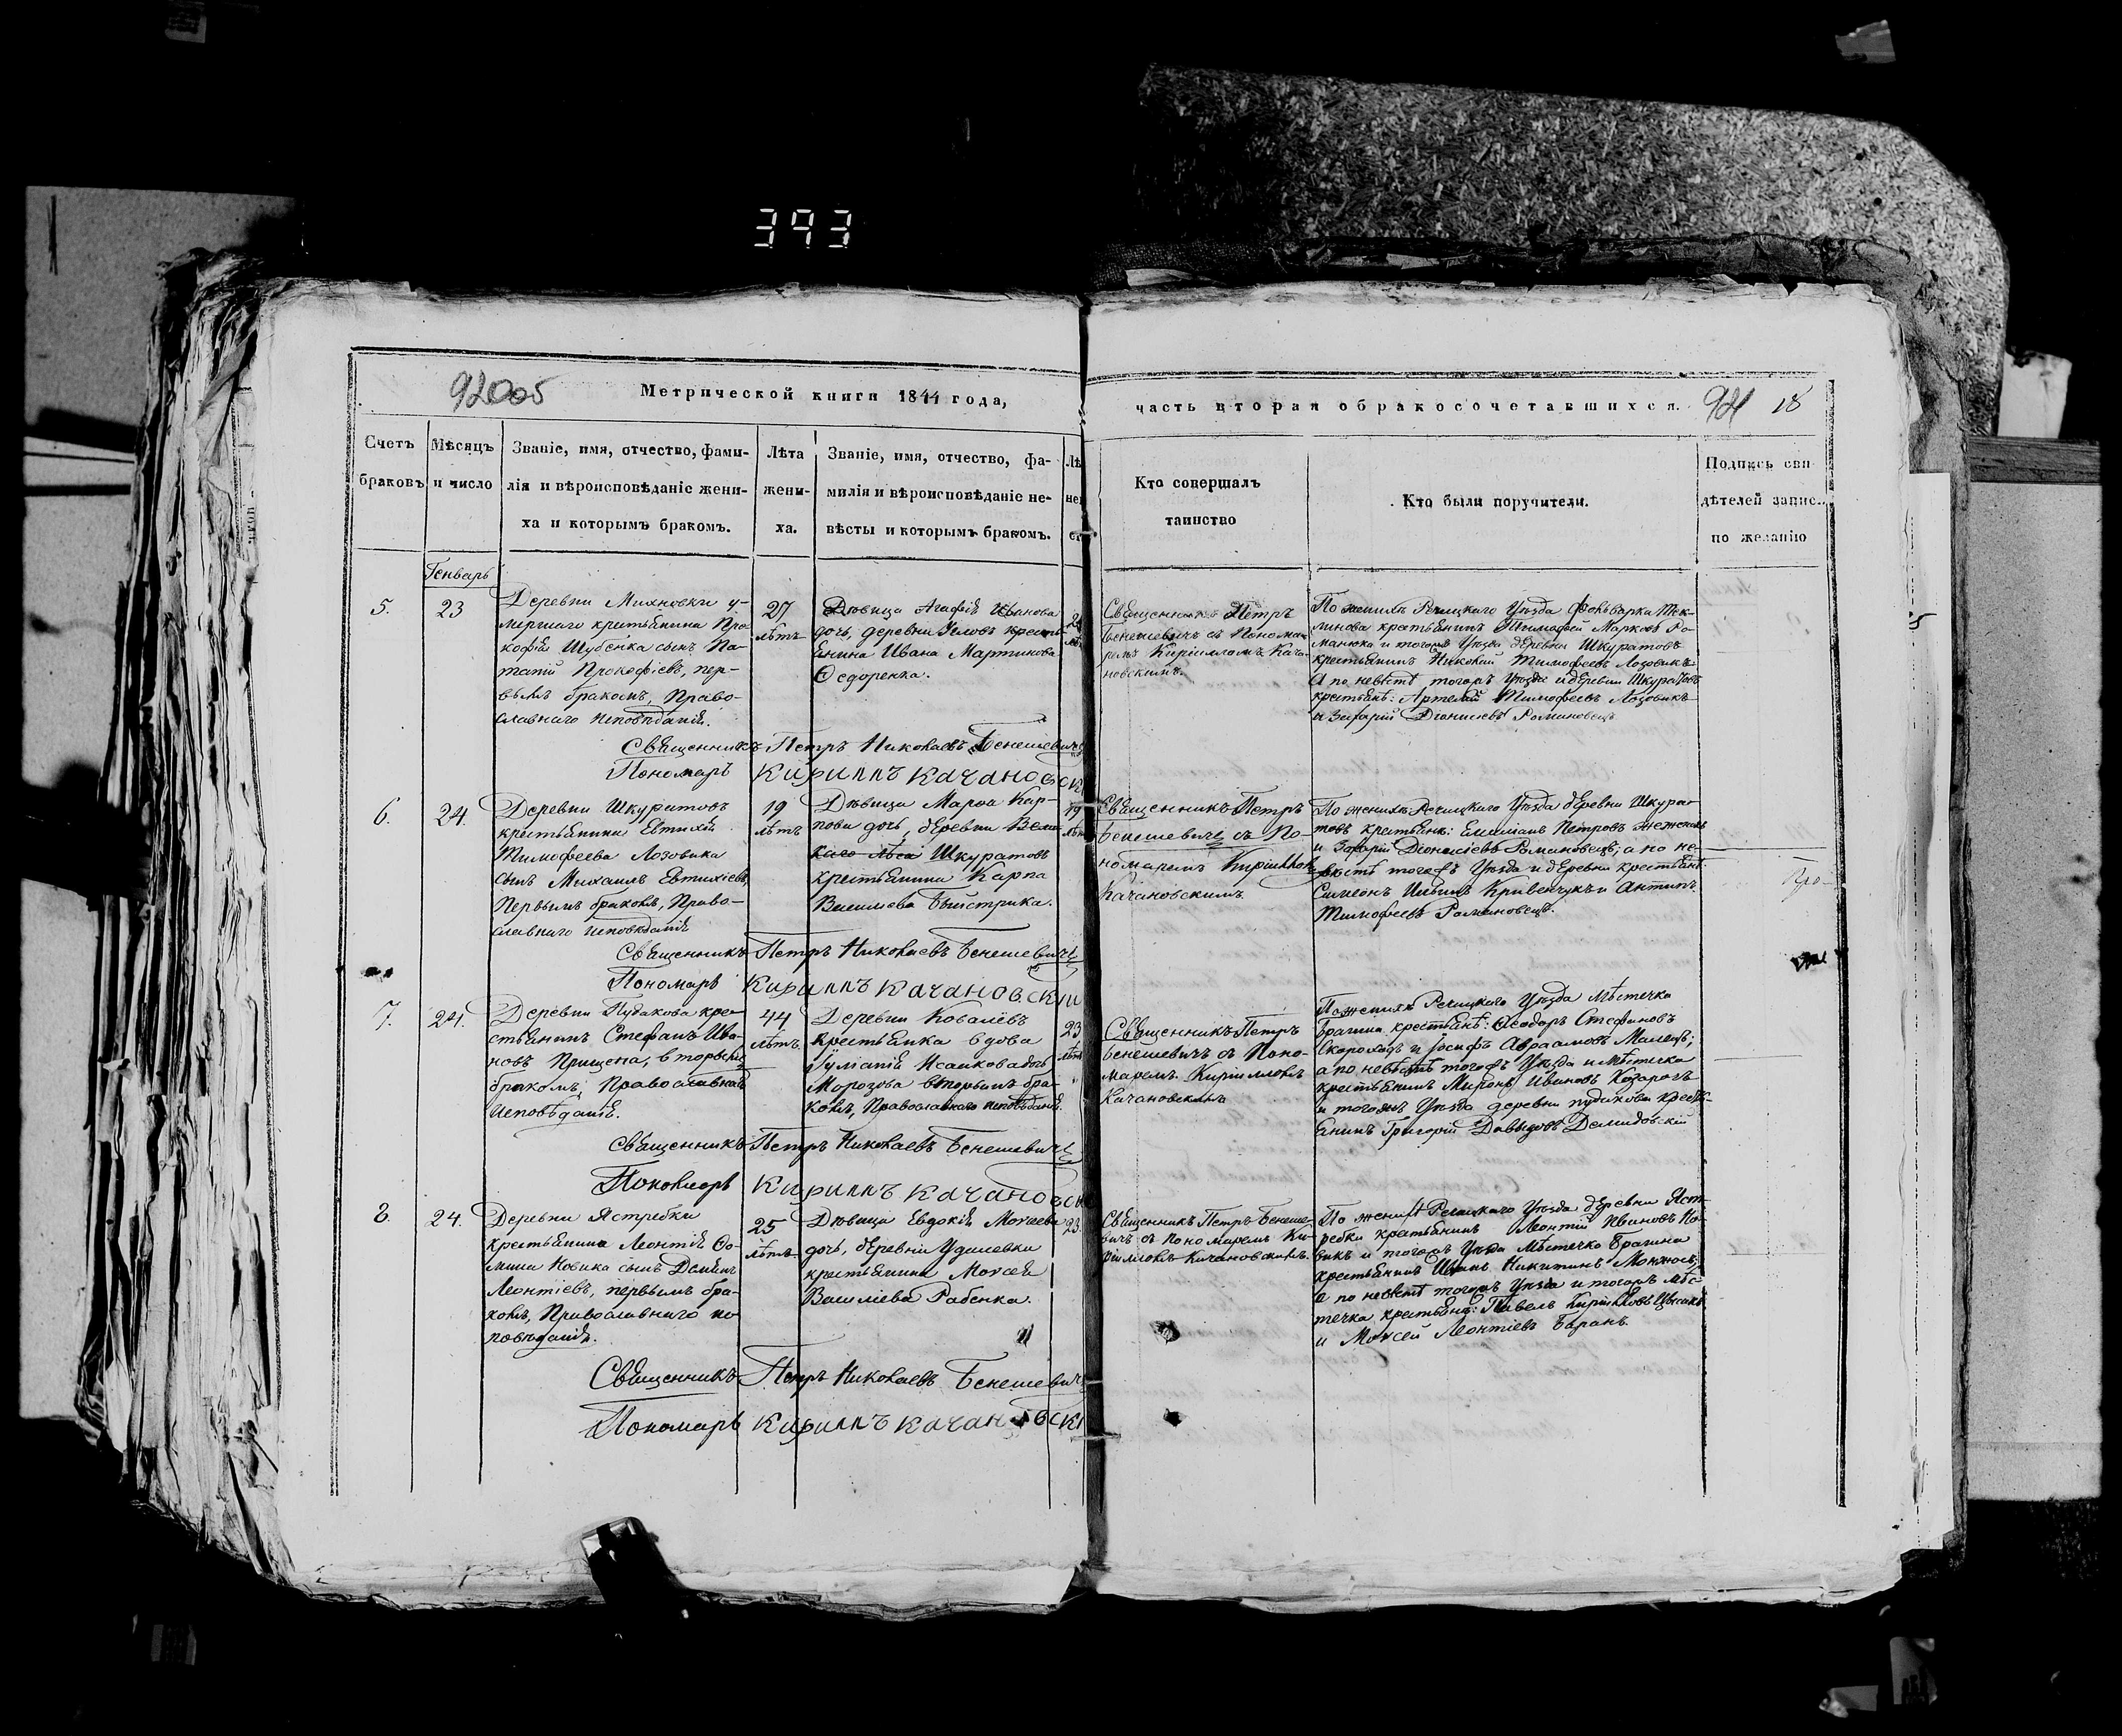 393
92005
Метрической книги 1844 года,
Счетъ браковъ
Мѣсяцъ и число
Званіе, имя, отчество, фами-
лія и вѣроисповѣданіе жени-
ха и которымъ бракомъ.
Лѣта
жени-
ха.
Званіе, имя, отчество, фа-
милія и вѣроисповѣданіе не-
вѣсты и которымъ бракомъ.
Лѣ
не
часть вторая о бракосочетавшихся.
18
Кто совершалъ
таинство
Кто были поручители.
Подпись сви
дѣтелей запис..
по желанію
Генварь
5.
23
Деревни Михновки у-
мершаго крестьянина Про-
кофія Шубенка сынъ
Прокофіевъ, пер-
вымъ бракомъ, Право-
славнаго исповѣданія.
27
лѣтъ
Дѣвица Агафія Иванова
дочь, деревни кресть-
янина Ивана Мартинова
Ѳедоренка.
Священникъ Петръ
Бенешевичъ съ Понома-
ремъ Кирилломъ Кача-
новскимъ.
По женихѣ Речицкаго Уѣзда
крестьянинъ Тимофей Марковъ Ро-
манюка и тогожъ Уѣзда деревни Шкуратовъ
крестьянинъ Тимофеевъ Лозовикъ
А по невѣстѣ тогожъ Уѣзда и деревни Шкуратовъ
крестьяне: Артемій Тимофеевъ Лозовикъ
и Захарій Діонисіевъ Романовецъ
Священникъ Петръ Николаевъ Бенешевичъ
Пономарь Кириллъ Качановск
6.
24.
Деревни Шкуратовъ
крестьянина Евтихія
Тимофеева Лозовика
сынъ Михаилъ Евтихіевъ,
Первымъ бракомъ, Право-
славнаго исповѣданія
19
лѣтъ
Дѣвица Марѳа Кар-
пова дочь, деревни Вели-
каго лѣса Шкуратовъ
крестьянина Карпа
Васильева Быстрика.
19
Священникъ Петръ
Бенешевичъ съ По-
номаремъ Кирилломъ
Качановскимъ.
По женихѣ Речицкаго Уѣзда деревни Шкура-
товъ крестьяне: Емиліанъ Петровъ
и Захарій Діонисіевъ Романовецъ; а по не-
вѣстѣ тогожъ Уѣзда и деревни крестьяне
Симеонъ Кривенчукъ и Антипъ
Тимофеевъ Романовецъ.
Священникъ Петръ Николаевъ Бенешевичъ
Пономарь Кириллъ Качановскій
7.
24.
Деревни Пудакова кре-
стьянинъ Стефанъ Ива-
новъ Прищепа, вторымъ
бракомъ, Православнаго
исповѣданія.
44
лѣтъ
Деревни Ковалёвъ
крестьянка вдова
Іуліанія Исаикова дочь
Морозова вторымъ бра-
комъ, Православнаго исповѣданія.
23
Священникъ Петръ
Бенешевичъ съ Поно-
маремъ Кирилломъ
Качановскимъ
По женихѣ Речицкаго Уѣзда Мѣстечка
Брагина крестьяне: Ѳеодоръ Стефановъ
Скороходъ и Іосифъ Авраамовъ
а по невѣстѣ тогожъ Уѣзда и мѣстечка
крестьянинъ Миронъ Ивановъ Козарогъ
и тогожъ Уѣзда деревни Пудакова кресть-
янинъ Григорій Давыдовъ Демидовскій
Священникъ Петръ Николаевъ Бенешевичъ
Пономарь Кириллъ Качановск
8.
24.
Деревни Ястребки
крестьянина Леонтія Ѳо-
мина Новика сынъ Даміанъ
Леонтіевъ, первымъ бра-
комъ, Православнаго ис
повѣданія.
25
лѣтъ
Дѣвица Евдокія Моисеева
дочь, деревни Удалевки
крестьянина Моисея
Василіева Рабенка.
23
Священникъ Петръ Бенеше-
вичъ съ пономаремъ Ки-
рилломъ Качановскимъ.
По женихѣ Речицкаго Уѣзда деревни Яст-
ребки крестьянинъ Леонтій Ивановъ Но-
викъ и тогожъ Уѣзда Мѣстечка Брагина
крестьянинъ Никитинъ
а по невѣстѣ тогожъ Уѣзда и тогожъ мѣс-
течка крестьяне: Павелъ Кирилловъ
и Моисей Леонтіевъ Баранъ
Священникъ Петръ Николаевъ Бенешевичъ
Пономарь Кириллъ Качановскі